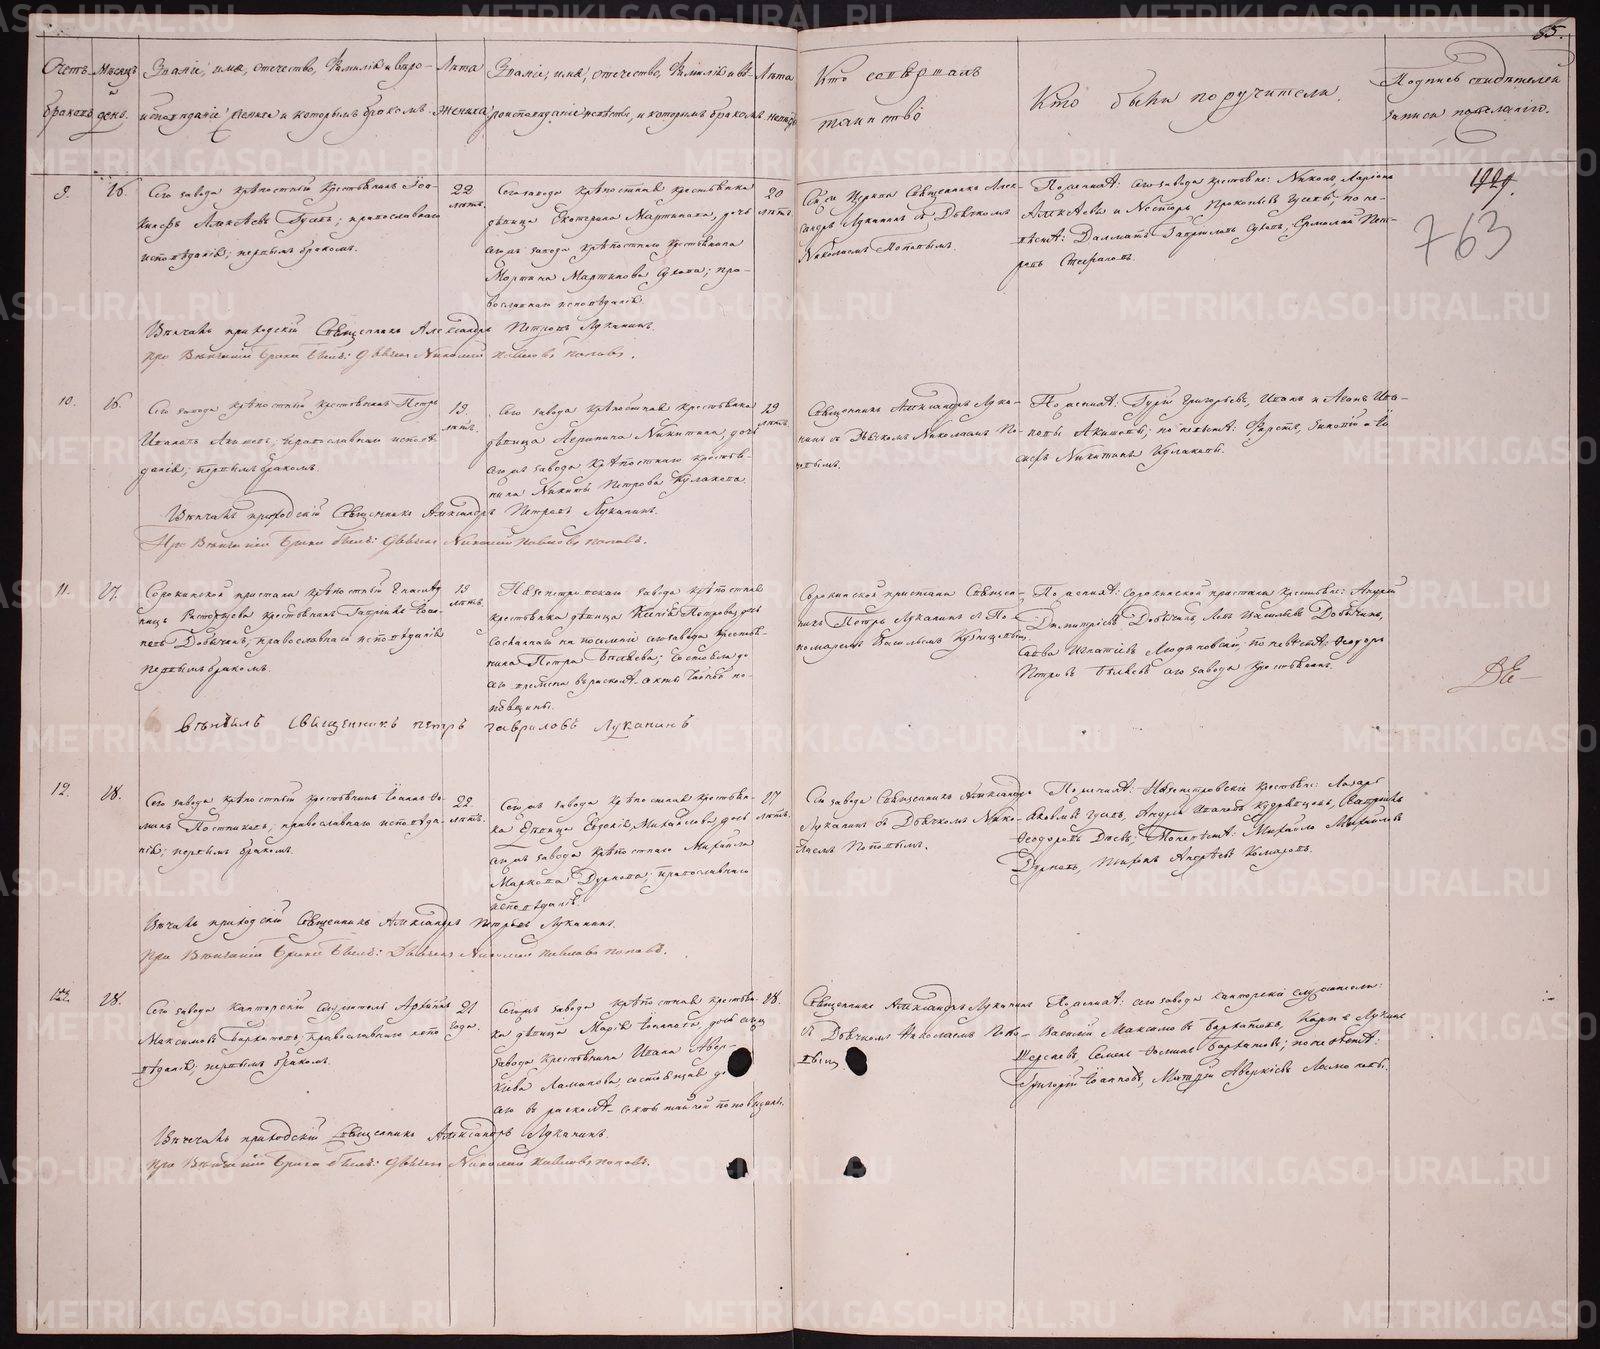 65.
Счетъ браковъ
Мѣсяцъ и день.
Званіе, имя, отечество, фамилія и вѣро-
исповѣданіе жениха и которымъ бракомъ.
Лѣта жениха
Званіе, имя, отечество, фамилія и вѣ-
роисповѣданіе невѣсты, и которымъ бракомъ
Лѣта невѣсты
Кто совершалъ
таинство
Кто были поручители.
Подпись свидѣтелей
записи по желанію.
763
9.
16.
Сего завода крѣпостный крестьянинъ
Алексѣевъ Гусевъ; православнаго
исповѣданія; первымъ бракомъ.
22
лѣтъ.
Сего завода крѣпостная крестьянка
дѣвица Екатерина Мартинова, дочь
сегожъ завода крѣпостнаго крестьянина
Мартина Мартинова Сухова; пра-
вославнаго исповѣданія.
20
лѣтъ.
Сей церкви Священникъ Алек-
сандръ Луканинъ съ Дьячкомъ
Николаемъ Поповымъ.
По женихѣ: сего завода крестьяне: Никонъ, Ларіонъ
Алексѣевы и Несторъ Прокопьевъ Гусевы; по не-
вѣстѣ: Далматъ Гавриловъ Суховъ, Ермолай Пет-
ровъ Стефановъ.
Вѣнчалъ приходскій Священникъ Александръ Петровъ Луканинъ.
При Вѣнчаніи брака былъ: Дьячекъ Николай Павловъ Поповъ.
10.
16.
Сего завода крѣпостный крестьянинъ Петръ
Ивановъ Акишевъ, православнаго исповѣ-
данія; первымъ бракомъ.
19
лѣтъ.
Сего завода крѣпостная крестьянка
дѣвица Никитина, дочь
сегожъ завода крѣпостнаго крестья-
нина Никиты Петрова Кулакова
19
лѣтъ.
Священникъ Александръ Лука-
нинъ съ Дьячкомъ Николаемъ По-
повымъ.
По женихѣ: Гурій Григорьевъ, Иванъ и Леонъ Ива-
новы Акишевы; по невѣстѣ: Фирстъ, Зиновій и
Никитины Кулаковы.
Вѣнчалъ приходскій Священникъ Александръ Петровъ Луканинъ.
При Вѣнчаніи брака былъ: Дьячекъ Николай Павловъ Поповъ.
11.
27.
Сорокинской пристани крѣпостный
Расторгуева крестьянинъ Гавріилъ Іоан-
новъ Добычинъ, православнаго исповѣданія
первымъ бракомъ.
19
лѣтъ.
Нязепетровскаго завода крѣпостная
крестьянка дѣвица Ксенія Петрова, дочь
сосланнаго на поселеніе сего завода крестья-
нина Петра Бѣляева; состояла до
сего времени въ расколѣ секты часовен по-
повщины.
Сорокинской пристани Священ-
никъ Петръ Луканинъ съ По-
номаремъ Кузнецовымъ.
По женихѣ: Сорокинской пристани крестьяне: Андрей
Димитріевъ Добычинъ, Левъ Васильевъ Добычинъ,
Савва Игнатіевъ; по невѣстѣ: Ѳеодоръ
Петровъ Бѣляевъ сего завода крестьянинъ.
Вѣнчалъ Священникъ Петръ Гавриловъ Луканинъ
12.
28.
Сего завода крѣпостный крестьянинъ Іоаннъ Ѳо-
минъ Постниковъ, православнаго исповѣда-
нія; первымъ бракомъ.
22
лѣтъ.
Сегожъ завода крѣпостная крестьян-
ка дѣвица Евдокія Михайлова, дочь
сегожъ завода крѣпостнаго Михайла
Маркова Дурнова; православнаго
исповѣданія.
27
лѣтъ.
Сего завода Священникъ Александръ
Луканинъ съ Дьячкомъ Нико-
лаемъ Поповымъ.
По женихѣ: Нязепетровскіе крестьяне: Лазарь
Яковлевъ Гусевъ, Андрей Ивановъ Кудрявцевъ,
Ѳеодоровъ; По невѣстѣ: Михайло Михайловъ
Дурновъ, Андреевъ Комаровъ.
Вѣнчалъ приходскій Священникъ Александръ Петровъ Луканинъ.
При Вѣнчаніи брака былъ: Дьячекъ Николай Павловъ Поповъ.
28.
Сего завода Конторскій Служитель Архипъ
Максимовъ Бархатовъ, православнаго испо-
вѣданія; первымъ бракомъ.
21
года.
Сегожъ завода крѣпостная крестьян-
ка дѣвица Марія Іоаннова, дочь сего
завода крестьянина Ивана Авер-
кіева Ламанова, состоявшая до
сего въ расколѣ секты поповщины.
28.
Священникъ Александръ Луканинъ
съ Дьячкомъ Николаемъ Попо-
вымъ
По женихѣ: сего завода конторскіе служители:
Василій Максимовъ Бархатовъ, Карпъ Лукинъ
Семенъ Ѳоминъ Бархатовъ; по невѣстѣ:
Григорій Іоанновъ, Матвѣй Аверкіевъ Ламановы.
Вѣнчалъ приходскій Священникъ Александръ Луканинъ.
При Вѣнчаніи брака былъ: Дьячекъ Николай Павловъ Поповъ.
METRIKI.GASO-URAL.RU